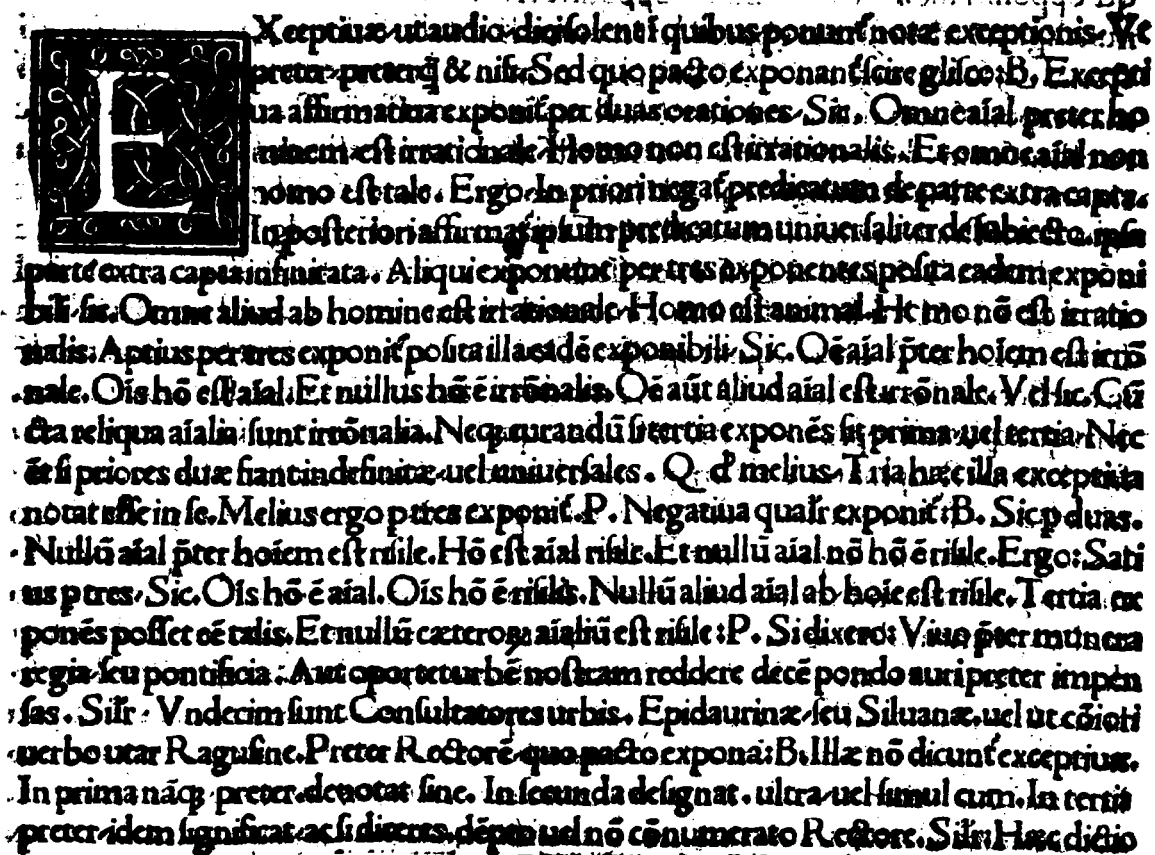 EXceptiuæ ut audio dici solent ī quibus ponunt᷑ notæ exceptionis. Vt
preter preterq̄ & nisi. Sed quo pacto exponant᷑ scire glisco: B. Excepti
ua affirmatiua exponit᷑ per duas orationes. Sic. Omne aīal preter ho
minem est irrationale. Homo non est irrationalis. Et omne aīal non
homo est tale. Ergo. In priori negat᷑ predicatum de parte extra capta.
In posteriori affirmat᷑ ipsum predicatum uniuersaliter de subiecto. ipsa
parte extra capta infinitata. Aliqui exponunt per tres exponentes posita eadem exponi
bili sic. Omne aliud ab homine est irrationale. Homo est animal. Homo nō est irratio
nalis. Aptius per tres exponit᷑ posita illa eadē exponibili. Sic. Oē aīal p̄ter hoīem est irrō
nale. Oīs hō est aīal. Et nullus hō ē irrōnalis. Oē aūt aliud aīal est irrōnale. Vel sic. Cū
cta reliqua aīalia sunt irrōnalia. Neq; curandū si tertia exponēs sit prima uel tertia. Nec
ēt si priores duæ fiant indefinitæ uel uniuersales. Q. melius. Tria hæc illa exceptiua
notat esse in se. Melius ergo p tres exponit᷑. P. Negatiua qualr̄ exponit᷑: B. Sic p duas.
Nullū aīal p̄ter hoīem est risile. Hō est aīal risile. Et nullū aīal nō hō ē risile. Ergo: Sati
us p tres. Sic. Oīs hō ē aīal. Oīs hō ē risilis. Nullū aliud aīal ab hoīe est risile. Tertia ex
ponēs posset eē talis. Et nullū cæteroꝝ aīaliū est risile: P. Si dixero: Viuo p̄ter munera
regia seu pontificia: Aut oportet urbē nostram reddere decē pondo auri preter impēn
sas. Silr̄. Vndecim sunt Consultatores urbis. Epidaurinæ seu Siluanæ. uel ut cōi oti
uerbo utar Ragusine. Preter Rectorē quo pacto exponā: B. Illæ nō dicunt᷑ exceptiuæ.
In prima nāq; preter. denotat sine. In secunda designat. ultra uel simul cum. In tertia
preter idem significat ac si diceres. dēpto uel nō cōnumerato Rectore. Silr̄: Hæc dictio